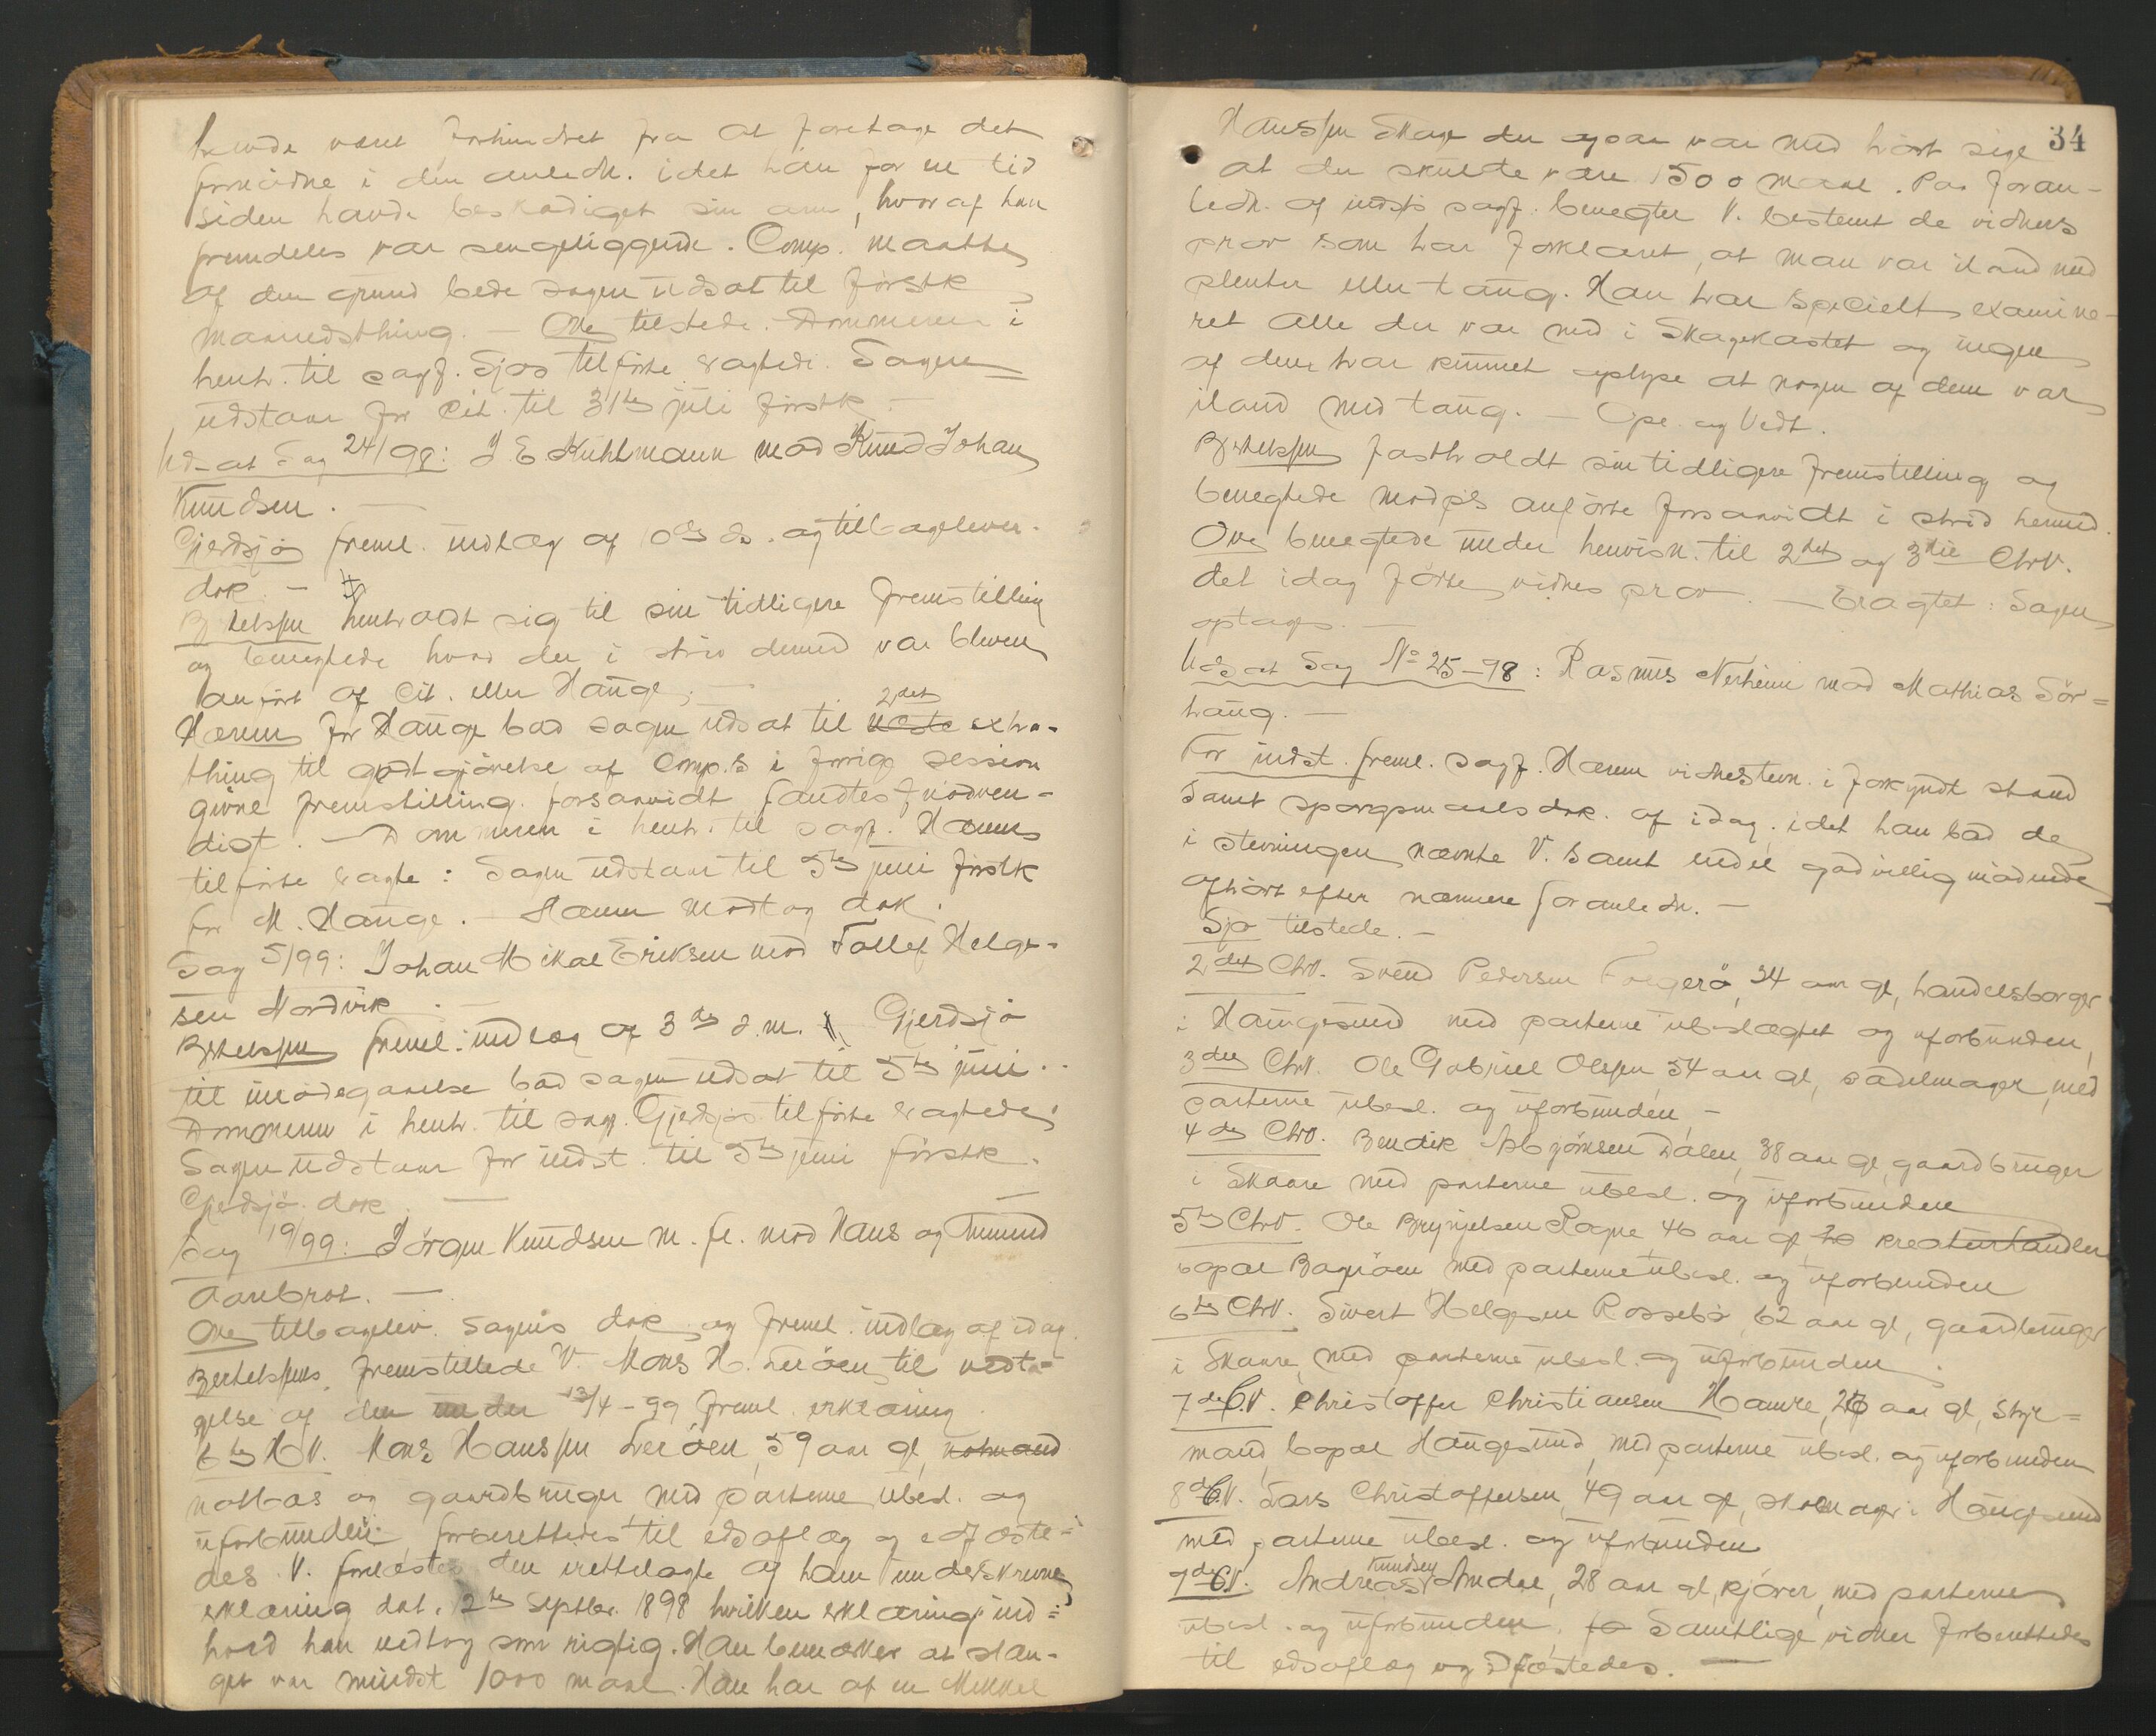 havde været forhindret fra at foretage det
fornødne i den anledn. idet han for en tid
siden havde beskadiget sin arm, hvoraf han
fremdeles var sengeliggende. Comp. maatte
af den grund bede sagen udsat til førstk
maanedsthing. — Ove tilstede. Dommeren i
henh. til sagf. Sjøs tilførte eragtede. Sagen
udstaar for Cit. til 31te juli førstk. —
Uds at Sag 24/98: J E Kuhlmann mod Knud Johan
Knudsen. —
Gjerdsjø freml. indlæg af 10de ds. og tilbagelever.
dok. —
Berthelsen henholdt sig til sin tidligere fremstilling
og benegtede hvad der i strid dermed var bleven
anført af Cit. eller Hauge. —
Hærem for Hauge bad sagen udsat til næste 2det extra-
thing til godtgjørelse af Comp.s i forrige session
givne fremstilling forsaavidt fandtes nødven-
digt. — Dommeren i henh. til sagf. Hærems
tilførte eragte: Sagen udstaar til 5te juni førstk
for M. Hauge. — Hærem modtog dok.
Sag 5/99: Johan Mikal Eriksen mod Tollef Helge-
sen Nordvik. —
Berthelsen freml. indlæg af 3die d.m. Gjerdsjø
til imødegaaelse bad sagen udsat til 5te juni.
Dommeren i henh. til sagf. Gjerdsjøs tilførte eragtede:
Sagen udstaar for indst. til 5te juni førstk.
Gjerdsjø dok. —
Sag 19/99: Jørgen Knudsen m. fl. mod Hans og Amund
Aarebrot. —
Ove tilbagelev. sagens dok. og freml. indlæg af idag.
Berthelsens fremstillede V. Mons H. Lerøen til vedta-
gelse af den under 13/4-99 freml. erklæring.
6te HV. Mons Hanssen Lerøen, 59 aar gl, notmand
notbas og gaardbruger, med parterne ubesl. og
uforbunden, forberettedes til edsaflæg og edfæste-
des. V. forelæstes den irettelagte af ham underskrevne
erklæring dat. 12te Septbr. 1898 hvilken erklærings ind-
hold han vedtog som rigtig. Han bemærker at stæn-
get var mindst 1000 maal. Han har af en Mikkel
34
Hanssen Skage der ogsaa var med hørt sige
at der skulde være 1500 maal. Paa foran-
ledn. af indst's sagf. benegter V. bestemt de vidners
prov som har forklaret, at man var iland med
plenter eller tang. Han har specielt examine-
ret alle der var med i Skagekastet og ingen
af dem har kunnet oplyse at nogen af dem var
iland med tang. — Opl. og Vedt.
Berthelsen fastholdt sin tidligere fremstilling og
benegtede modp's anførte forsaavidt i strid hermed.
Ove benegtede under henvisn. til 2det og 3die Chv.
det idag førte vidnes prov. — Eragtet: Sagen
optages. —
Uds at Sag No 25-98: Rasmus Nerheim mod Mathias Sør-
haug. —
For indst. freml. sagf. Hærem vidnestevn. i forkyndt stand
samt spørgsmaalsdok. af idag, idet han bad de
i stevningen nævnte V. samt endel godvillig mødende
afhørt efter nærmere foranledn. —
Sjø tilstede. —
2det Chv. Svend Pedersen Fægerø, 34 aar gl, handelsborger
i Haugesund med parterne ubeslægtet og uforbunden,
3die Chv. Ole Gabriel Olssen, 54 aar gl, sadelmager, med
parterne ubesl. og uforbunden, —
4de Chv. Bendik Asbjørnsen Dalen, 38 aar gl, gaardbruger
i Skaare med parterne ubesl. og uforbunden
5te Chv. Ole Brynjelsen Ragne 46 aar gl, kreaturhandler
bopæl Bagnøen med parterne ubesl. og uforbunden
6te Chv. Sivert Helgesen Rossebø, 62 aar gl, gaardbruger
i Skaare, med parterne ubesl. og uforbunden.
7de C.V. Christoffer Christiansen Hamre, 26 aar gl, styr-
mand, bopæl Haugesund, med parterne ubesl. og uforbunden
8de C.V. Lars Christoffersen, 49 aar gl, skomager i Haugesund
med parterne ubesl. og uforbunden
9de C.V. Andreas Knudsen Amdal, 28 aar gl, kjører, med parterne
ubesl. og uforbunden, Samtlige vidner forberettedes
til edsaflæg og edfæstedes. —